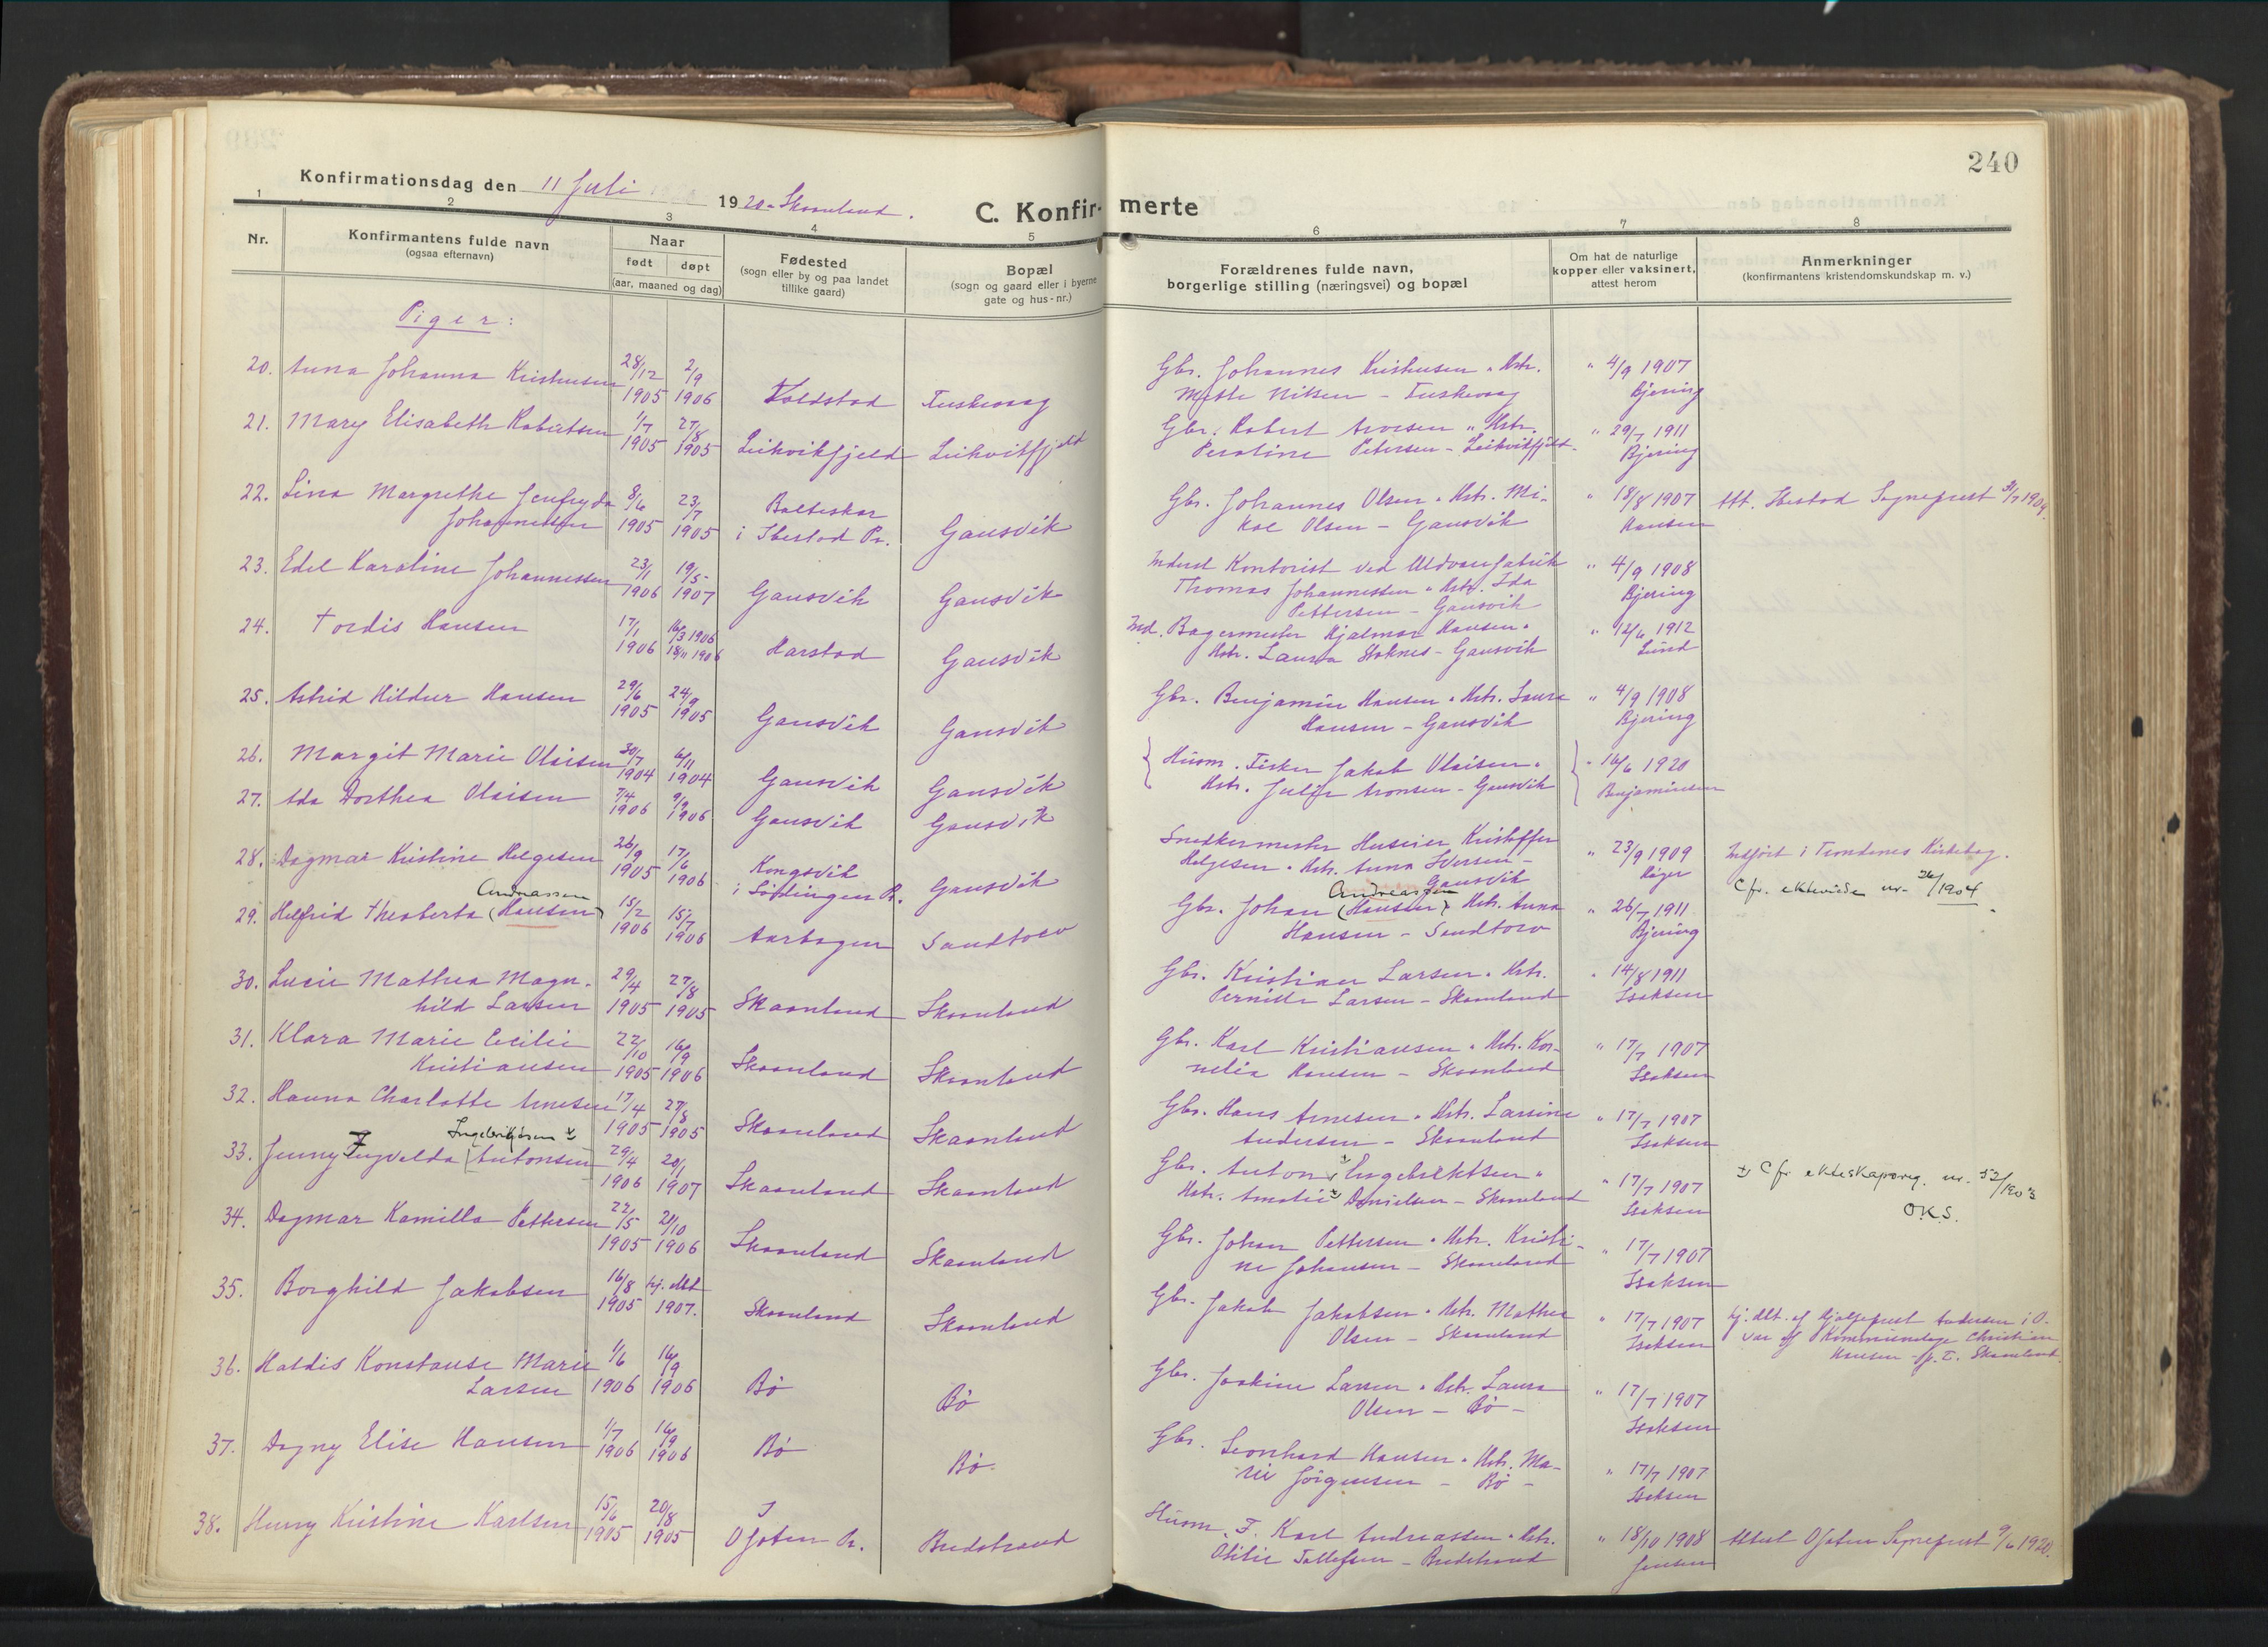 240
Konfirmationsdag den 11 Juli 1920 - Skaanland.
C. Konfirmerte
1 2 3 4 5 6 7 8
Nr.
Konfirmantens fulde navn
(ogsaa efternavn)
Naar
født døpt
(aar, maaned og dag)
Fødested
(sogn eller by og paa landet
tillike gaard)
Bopæl
(sogn og gaard eller i byerne
gate og hus-nr.)
Forældrenes fulde navn,
borgerlige stilling (næringsvei) og bopæl
Om hat de naturlige
kopper eller vaksinert,
attest herom
Anmerkninger
(konfirmantens kristendomskundskap m. v.)
Piger:
20. Anna Johanna Kristensen 28/12 1905 2/9 1906 Voldstad Fuskevaag Gbr. Johannes Kristensen · Hstr.
Mette Nilsen - Fuskevaag " 4/9 1907 Bjering
21. Mary Elisabeth Robertsen 1/7 1905 27/8 1905 Leikvikfjeld Leikvikfjeld Gbr. Robert Aronsen " Hstr.
Peraline Petersen - Leikvikfjeld. " 29/7 1911 Bjering
22. Lina Margrethe Jenfryda
Johannessen 8/6 1905 23/7 1905 Balteskar
i Ibestad Pr. Gausvik Gbr. Johannes Olsen · Hstr. Mi-
kal Olsen - Gausvik " 18/8 1907 Hansen Att. Ibestad Sogneprest 3/7 1909.
23. Edel Karoline Johannessen 23/1 1906 19/5 1907 Gausvik Gausvik Inderst Kontorist ved Uldvarefabrik
Thomas Johannessen · Hstr. Ida
Pettersen - Gausvik " 4/9 1908 Bjering
24. Tordis Hansen 17/1 1906 16/3 1906 18/11 1906 Harstad Gausvik Ind. Bagermester Hjalmar Hansen ·
Hstr. Laura Stoknes - Gausvik " 12/6 1912 Lund
25. Astrid Hildur Hansen 29/6 1905 24/9 1905 Gausvik Gausvik Gbr. Benjamin Hansen · Hstr. Laura
Hansen - Gausvik " 4/9 1908 Bjering
26. Margit Marie Olaisen 30/7 1904 6/11 1904 Gausvik Gausvik Husm. Fisker Jakob Olaisen ·
27. Ada Dorthea Olaisen 7/4 1906 9/9 1906 Gausvik Gausvik Hstr. Julie Aronsen - Gausvik " 16/6 1920 Benjaminsen
28. Dagmar Kristine Helgesen 26/9 1905 17/6 1906 Kongsvik
i Lødingen Pr. Gausvik Snedkermester Huseier Kristoffer
Helgesen · Hstr. Anna Iversen -
Gausvik " 23/9 1909 Riger Indført i Trondenes Kirkebog.
Andreassen
29. Helfrid Theoberta (Hansen) 15/2 1906 15/7 1906 Aarbogen Sandtorv Gbr. Johan (Hansen) Andreassen Hstr. Anna
Hansen - Sandtorv " 26/7 1911 Bjering Cfr. ekteviede nr. 26/1904
30. Lucie Mathea Magn-
hild Larsen 29/4 1905 27/8 1905 Skaanland Skaanland Gbr. Kristian Larsen · Hstr.
Pernille Larsen - Skaanland " 14/8 1911 Isaksen
31. Klara Marie Cecilie
Kristiansen 22/10 1905 16/9 1906 Skaanland Skaanland Gbr. Karl Kristiansen · Hstr. Kor-
nelia Hansen - Skaanland " 17/7 1907 Isaksen
32. Hanna Charlotte Arnesen 17/4 1905 27/8 1905 Skaanland Skaanland Gbr. Hans Arnesen · Hstr. Larsine
Andersen - Skaanland " 17/7 1907 Isaksen
Ingebrigtsen x)
33. Jenny Ingvalda (Antonsen 29/4 1906 20/1 1907 Skaanland Skaanland Gbr. Anton x) Engebriktsen ·
Hstr. Amalie x) Danielsen - Skaanland " 17/7 1907 Isaksen x) Cfr. ekteskapsreg. nr. 52/1903
O.K.S.
34. Dagmar Kamilla Pettersen 22/5 1905 21/10 1906 Skaanland Skaanland Gbr. Johan Pettersen · Hstr. Kristi-
ne Johansen - Skaanland " 17/7 1907 Isaksen
35. Borghild Jakobsen 16/8 1905 hj. dbt 1907. Skaanland Skaanland Gbr. Jakob Jakobsen · Hstr. Mathea
Olsen - Skaanland " 17/7 1907 Isaksen hj. dbt. af Hjælpeprest Andersen i O-
var af Kommunelæge Christian
Hansen - p. T. Skaanland.
36. Haldis Konstanse Marie
Larsen 1/6 1906 16/9 1906 Bø Bø Gbr. Joakim Larsen · Hstr. Laura
Olsen - Bø - " 17/7 1907 Isaksen
37. Dagny Elise Hansen 1/7 1906 16/9 1906 Bø Bø. Gbr. Leonhard Hansen · Hstr. Ma-
rie Jørgensen - Bø - " 17/7 1907 Isaksen
38. Henny Kristine Karlsen 15/6 1905 20/8 1905 I
Ofoten Pr. Bredstrand Husm. F. Karl Andreassen · Hstr.
Otilie Tollefsen - Bredstrand " 18/10 1908 Jensen Attest Ofoten Sogneprest 9/6 1920.